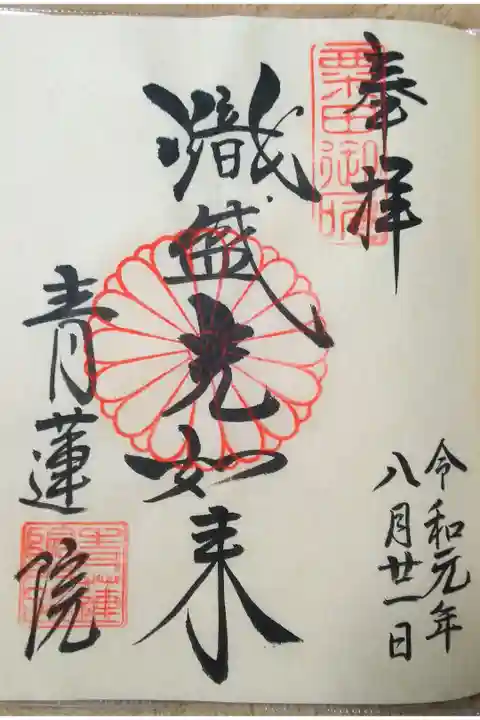 奉拝
粟田御所
令和元年
八月廿一日
熾盛光如来
青蓮院